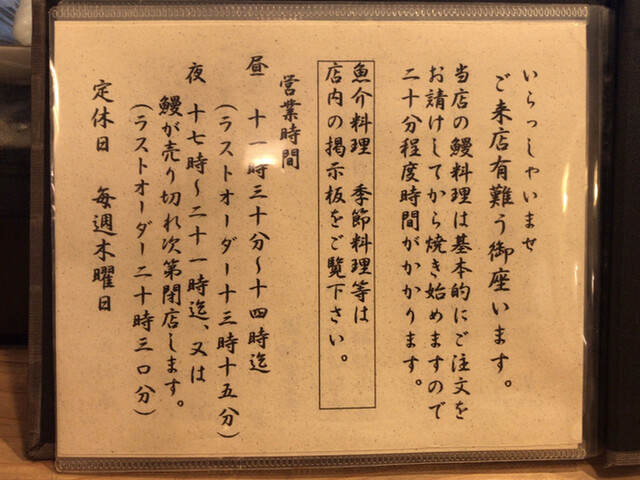 いらっしゃいませ
ご来店有難う御座います。
当店の鰻料理は基本的にご注文を
お請けしてから焼き始めますので
二十分程度時間がかかります。
魚介料理 季節料理等は
店内の掲示板をご覧下さい。
営業時間
昼 十一時三十分〜十四時迄
(ラストオーダー十三時十五分)
夜 十七時〜二十一時迄、又は
鰻が売り切れ次第閉店します。
(ラストオーダー二十時三〇分)
定休日 毎週木曜日